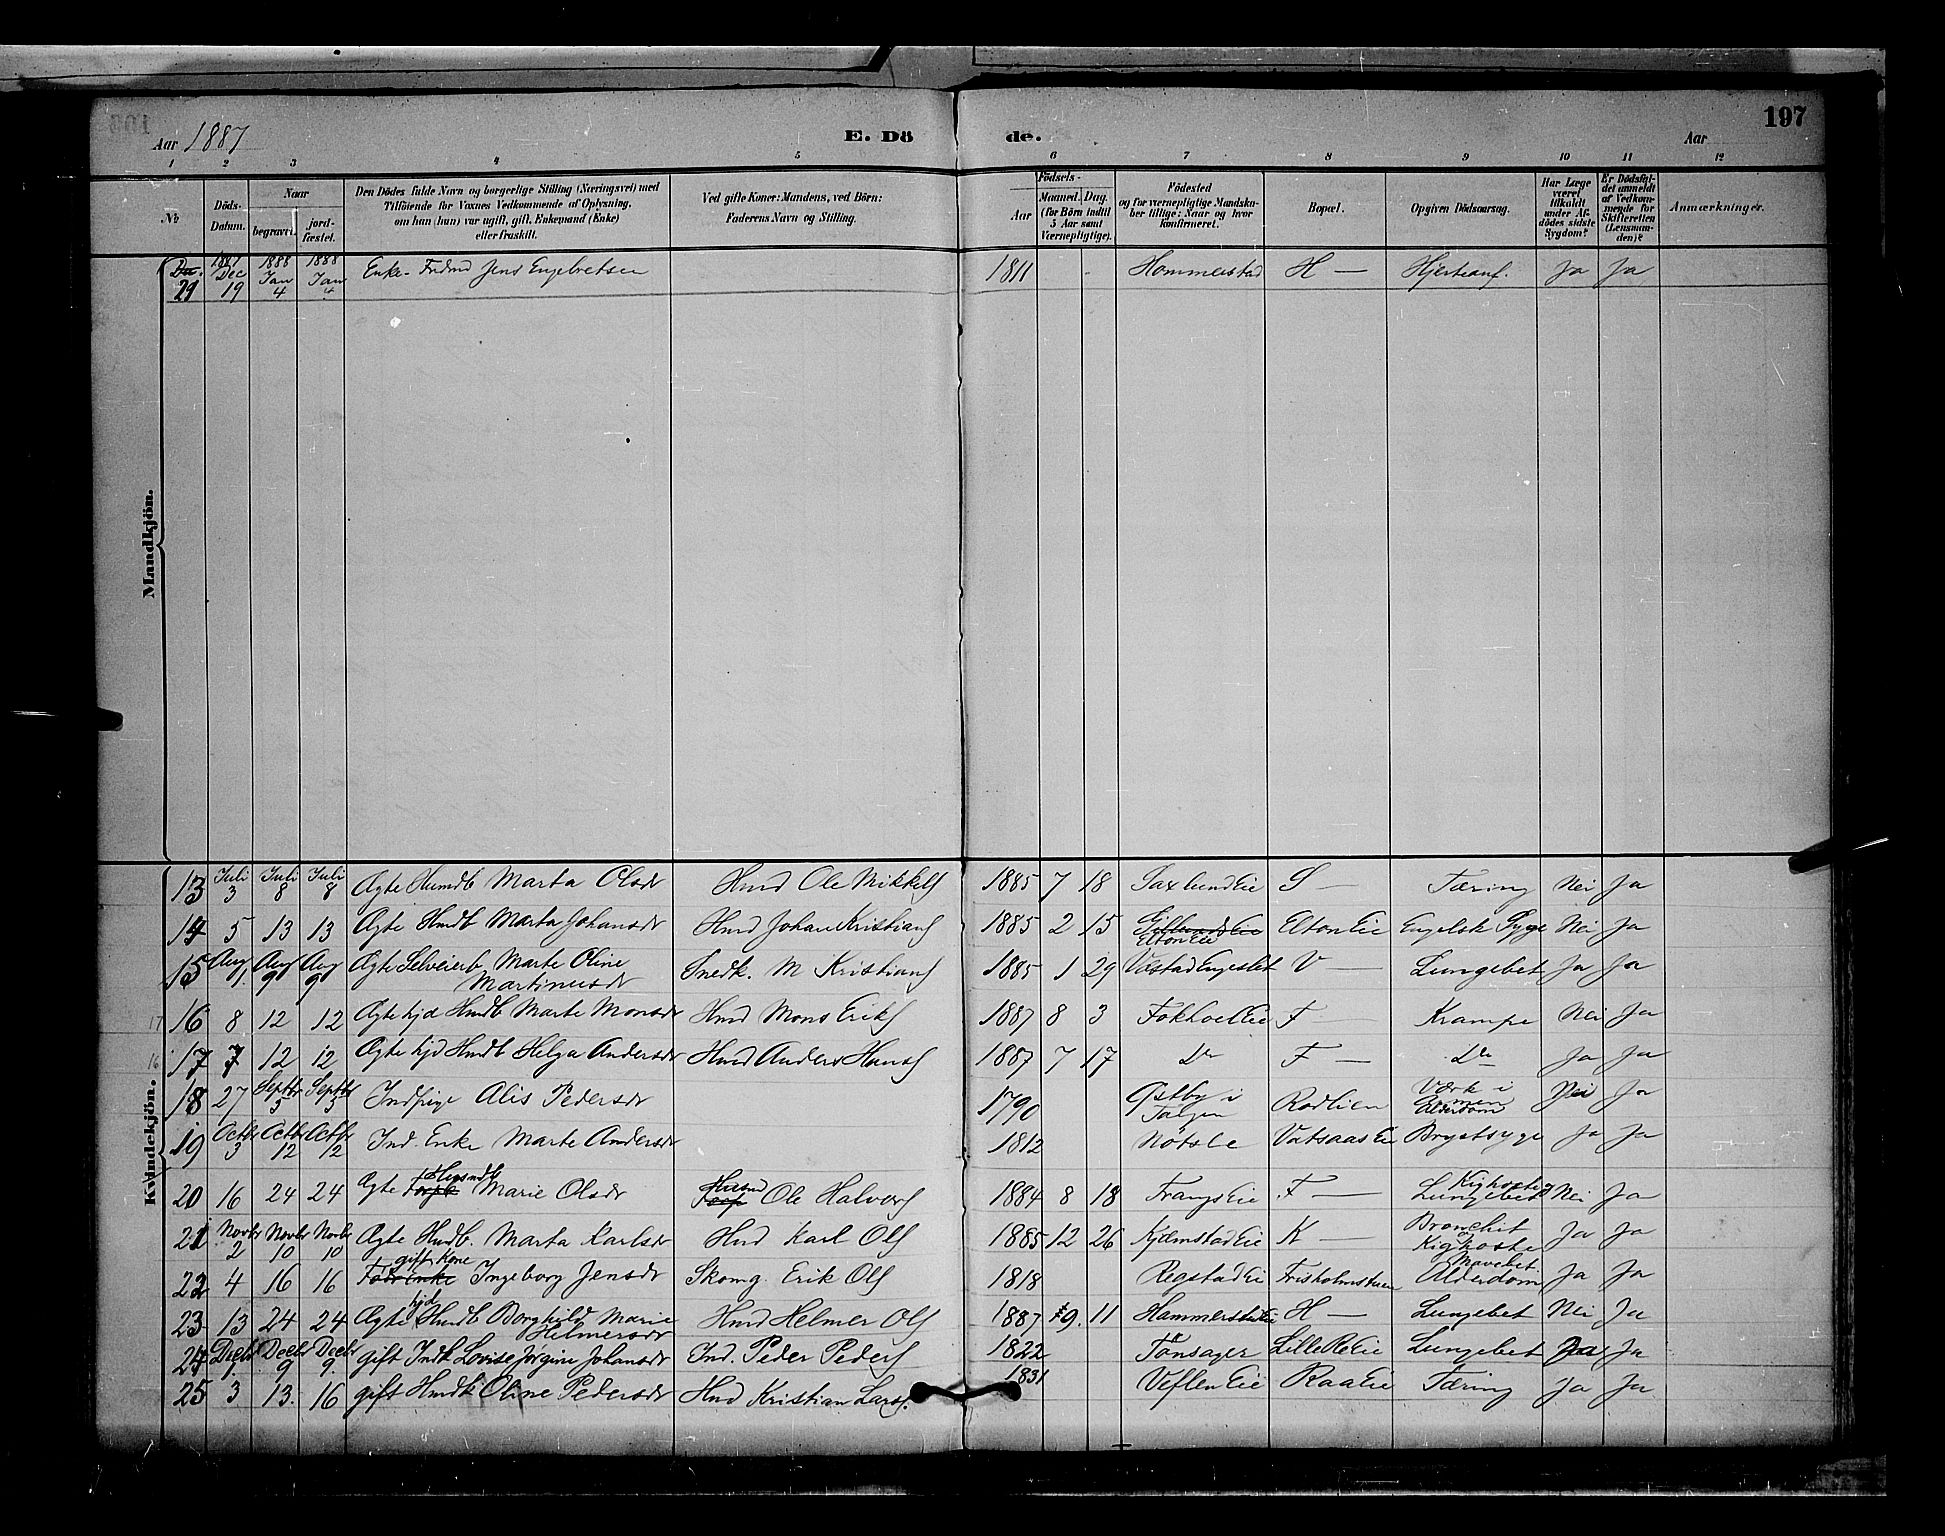 197
Aar 1887
E. Dö de.
Aar
1 2 3 4 5 6 7 8 9 10 11 12
No
Döds-Datum.
Naar
begravet. jord-fæstet.
Den Dödes fulde Navn og borgerlige Stilling (Næringsvei) med
Tilföiende for Voxnes Vedkommende af Oplysning,
om han (hun) var ugift, gift, Enkemand (Enke)
eller fraskilt.
Ved gifte Koner: Mandens, ved Börn:
Faderens Navn og Stilling.
Födsels-
Aar
Maaned. Dag.
(for Börn indtil
5 Aar samt
Værnepligtige).
Födested
og for værnepligtige Mandska-
ber tillige: Naar og hvor
konfirmeret.
Bopæl.
Opgiven Dödsaarsag.
Har Læge
været
tilkaldt
under Af-
dödes sidste
Sygdom?
Er Dödsfal-
det anmeldt
af Vedkom-
mende for
Skifteretten
(Lensman-
den)?
Anmærkninger.
Mandkjön.
21 1887 Dec 19 1888 Jan 4 1888 Jan 4 Enke- Jens Engebretsen 1811 Hommerstad H — Hjerteanf. Ja Ja
Kvindekjön.
13 Juli 3 Juli 8 Juli 8 Ægte Husmdb Marta Olsdr Hmd Ole Mikkels 1885 7 18 Saxlund Eie S — Tæring Nei Ja
14 5 13 13 Ægte Hmdb Marta Johansdr Hmd Johan Kristians 1885 2 15 Elton Eie Elton Eie Engelsk Syge Nei Ja
15 Aug 1. Aug 9 Aug 9 Ægte Selveierb Marte Oline Martinusdr Snedk. M Kristians 1885 1 29 Vestad Engeslet V — Lungebet Ja Ja
17 16 8 12 12 Ægte hjd Hmdb Marte Monsdr Hmd Mons Eriks 1887 8 3 Fokhol Eie F — Krampe Nei Ja
16 17 7 12 12 Ægte hjd Hmdb Helga Andersdr Hmd Anders Hans 1887 7 17 Do F — Do Ja Ja
18 27 Septbr 5 Septbr 5 Indpige Alis Pedersdr 1790 Østby i Rodlien Værk i Alderdom Nei Ja
19 Octbr 3 Octbr 12 Octbr 12 Ind. Enke Marte Andersdr 1812 Nötsle Vatsaas Eie Brystsyge Ja Ja
20 16 24 24 Ægte Husmdb Marie Olsdr Husmd Ole Halvors 1884 8 18 Frangs Eie F — Kighoste Lungebet Nei Ja
21 Novbr 2 Novbr 10 Novbr 10 Ægte Hmdb. Marta Karlsdr Hmd Karl Ols 1885 12 26 Kjemstad Eie K — Bronchit Kighoste Ja Ja
22 4 16 16 gift Kone Ingeborg Jensdr Skomg. Erik Ols 1818 Regstad Eie Frisholmstuen Mavebet. Alderdom Ja Ja
23 13 24 24 Ægte hjd Hmdb Borghild Marie Helmersdr Hmd Helmer Ols 1887 9. 11 Hammerstad Eie H — Lungebet Nei Ja
24 Decbr 1. Decbr 9 Decbr 9. gift Indk Lovise Jørgine Johansdr Ind. Peder Peders 1822 Tönsager Lille Re Eie Lungebet Ja Ja
25 3 13. 16 gift Hmdk Oline Pedersdr Hmd Kristian Lars. 1831 Veflen Eie Raa Eie Tæring Ja Ja